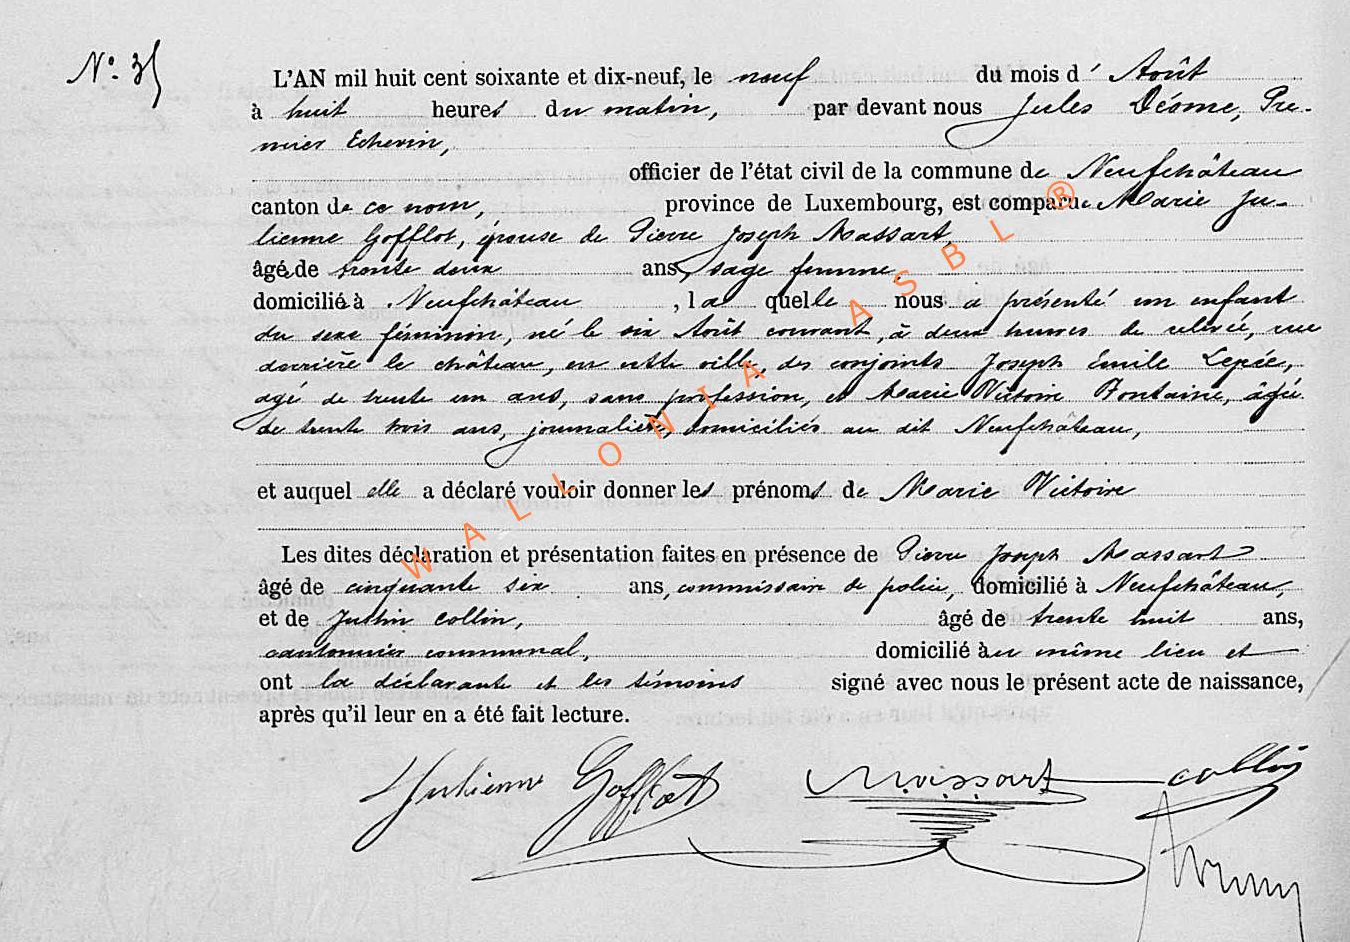 N° 35
L'AN mil huit cent soixante et dix-neuf, le neuf du mois d' Août
à huit heures du matin, par devant nous Jules Déome, Pre-
mier Echevin,
officier de l'état civil de la commune de Neufchâteau
canton de ce nom, province de Luxembourg, est comparue Marie Ju-
lienne Gofflot, épouse de Pierre Joseph Massart,
âgée de trente deux ans, sage femme,
domicilié à Neufchâteau, laquelle nous a présenté un enfant
du sexe féminin, né le six Août courant, à deux heures de relevée, rue
derrière le château, en cette ville, des conjoints Joseph Emile Lepée,
agé de trente un ans, sans profession, et Marie Victoire Fontaine, âgée
de trente trois ans, journalière, domiciliés au dit Neufchâteau,
et auquel elle a déclaré vouloir donner les prénoms de Marie Victoire
Les dites déclaration et présentation faites en présence de Pierre Joseph Massart
âgé de cinquante six ans, commissaire de police, domicilié à Neufchâteau,
et de Justin Collin, âgé de trente huit ans,
cantonnier communal, domicilié au même lieu et
ont la déclarante et les témoins signé avec nous le présent acte de naissance,
après qu'il leur en a été fait lecture.
Julienne Gofflot Massart Collin
WALLONIA ASBL ®